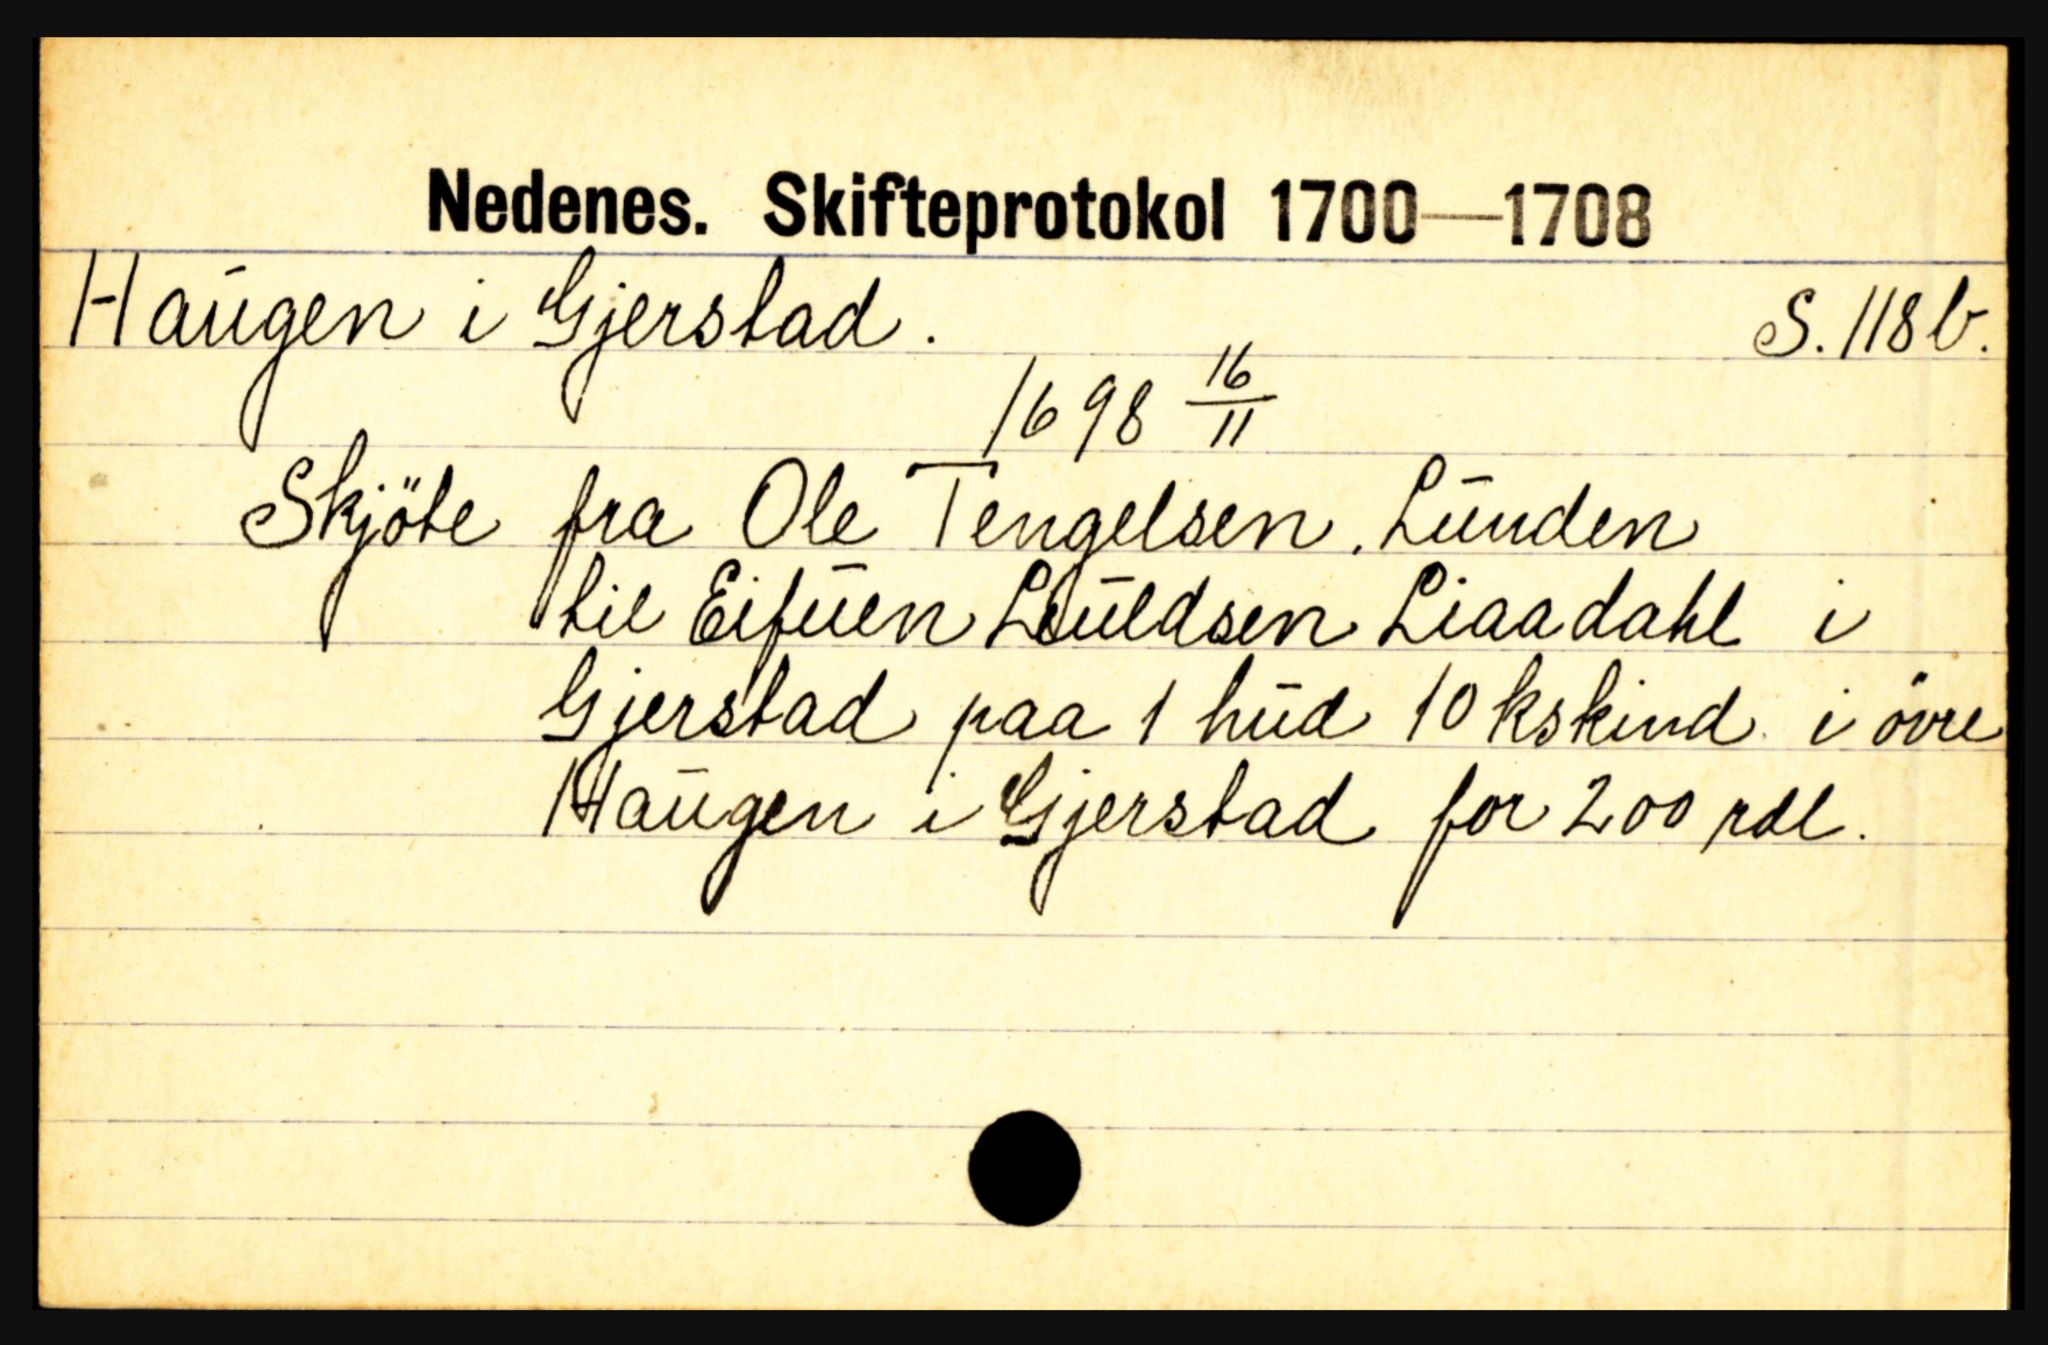 Nedenes. Skifteprotokol 1700—1708
Haugen i Gjerstad. S. 118 b.
1698 16/11
Skjöte fra Ole Tengelsen Lunden
til Eifuen Liaadahl i
Gjerstad paa 1 hud 10 kskind i övre
Haugen i Gjerstad for 200 rdl.